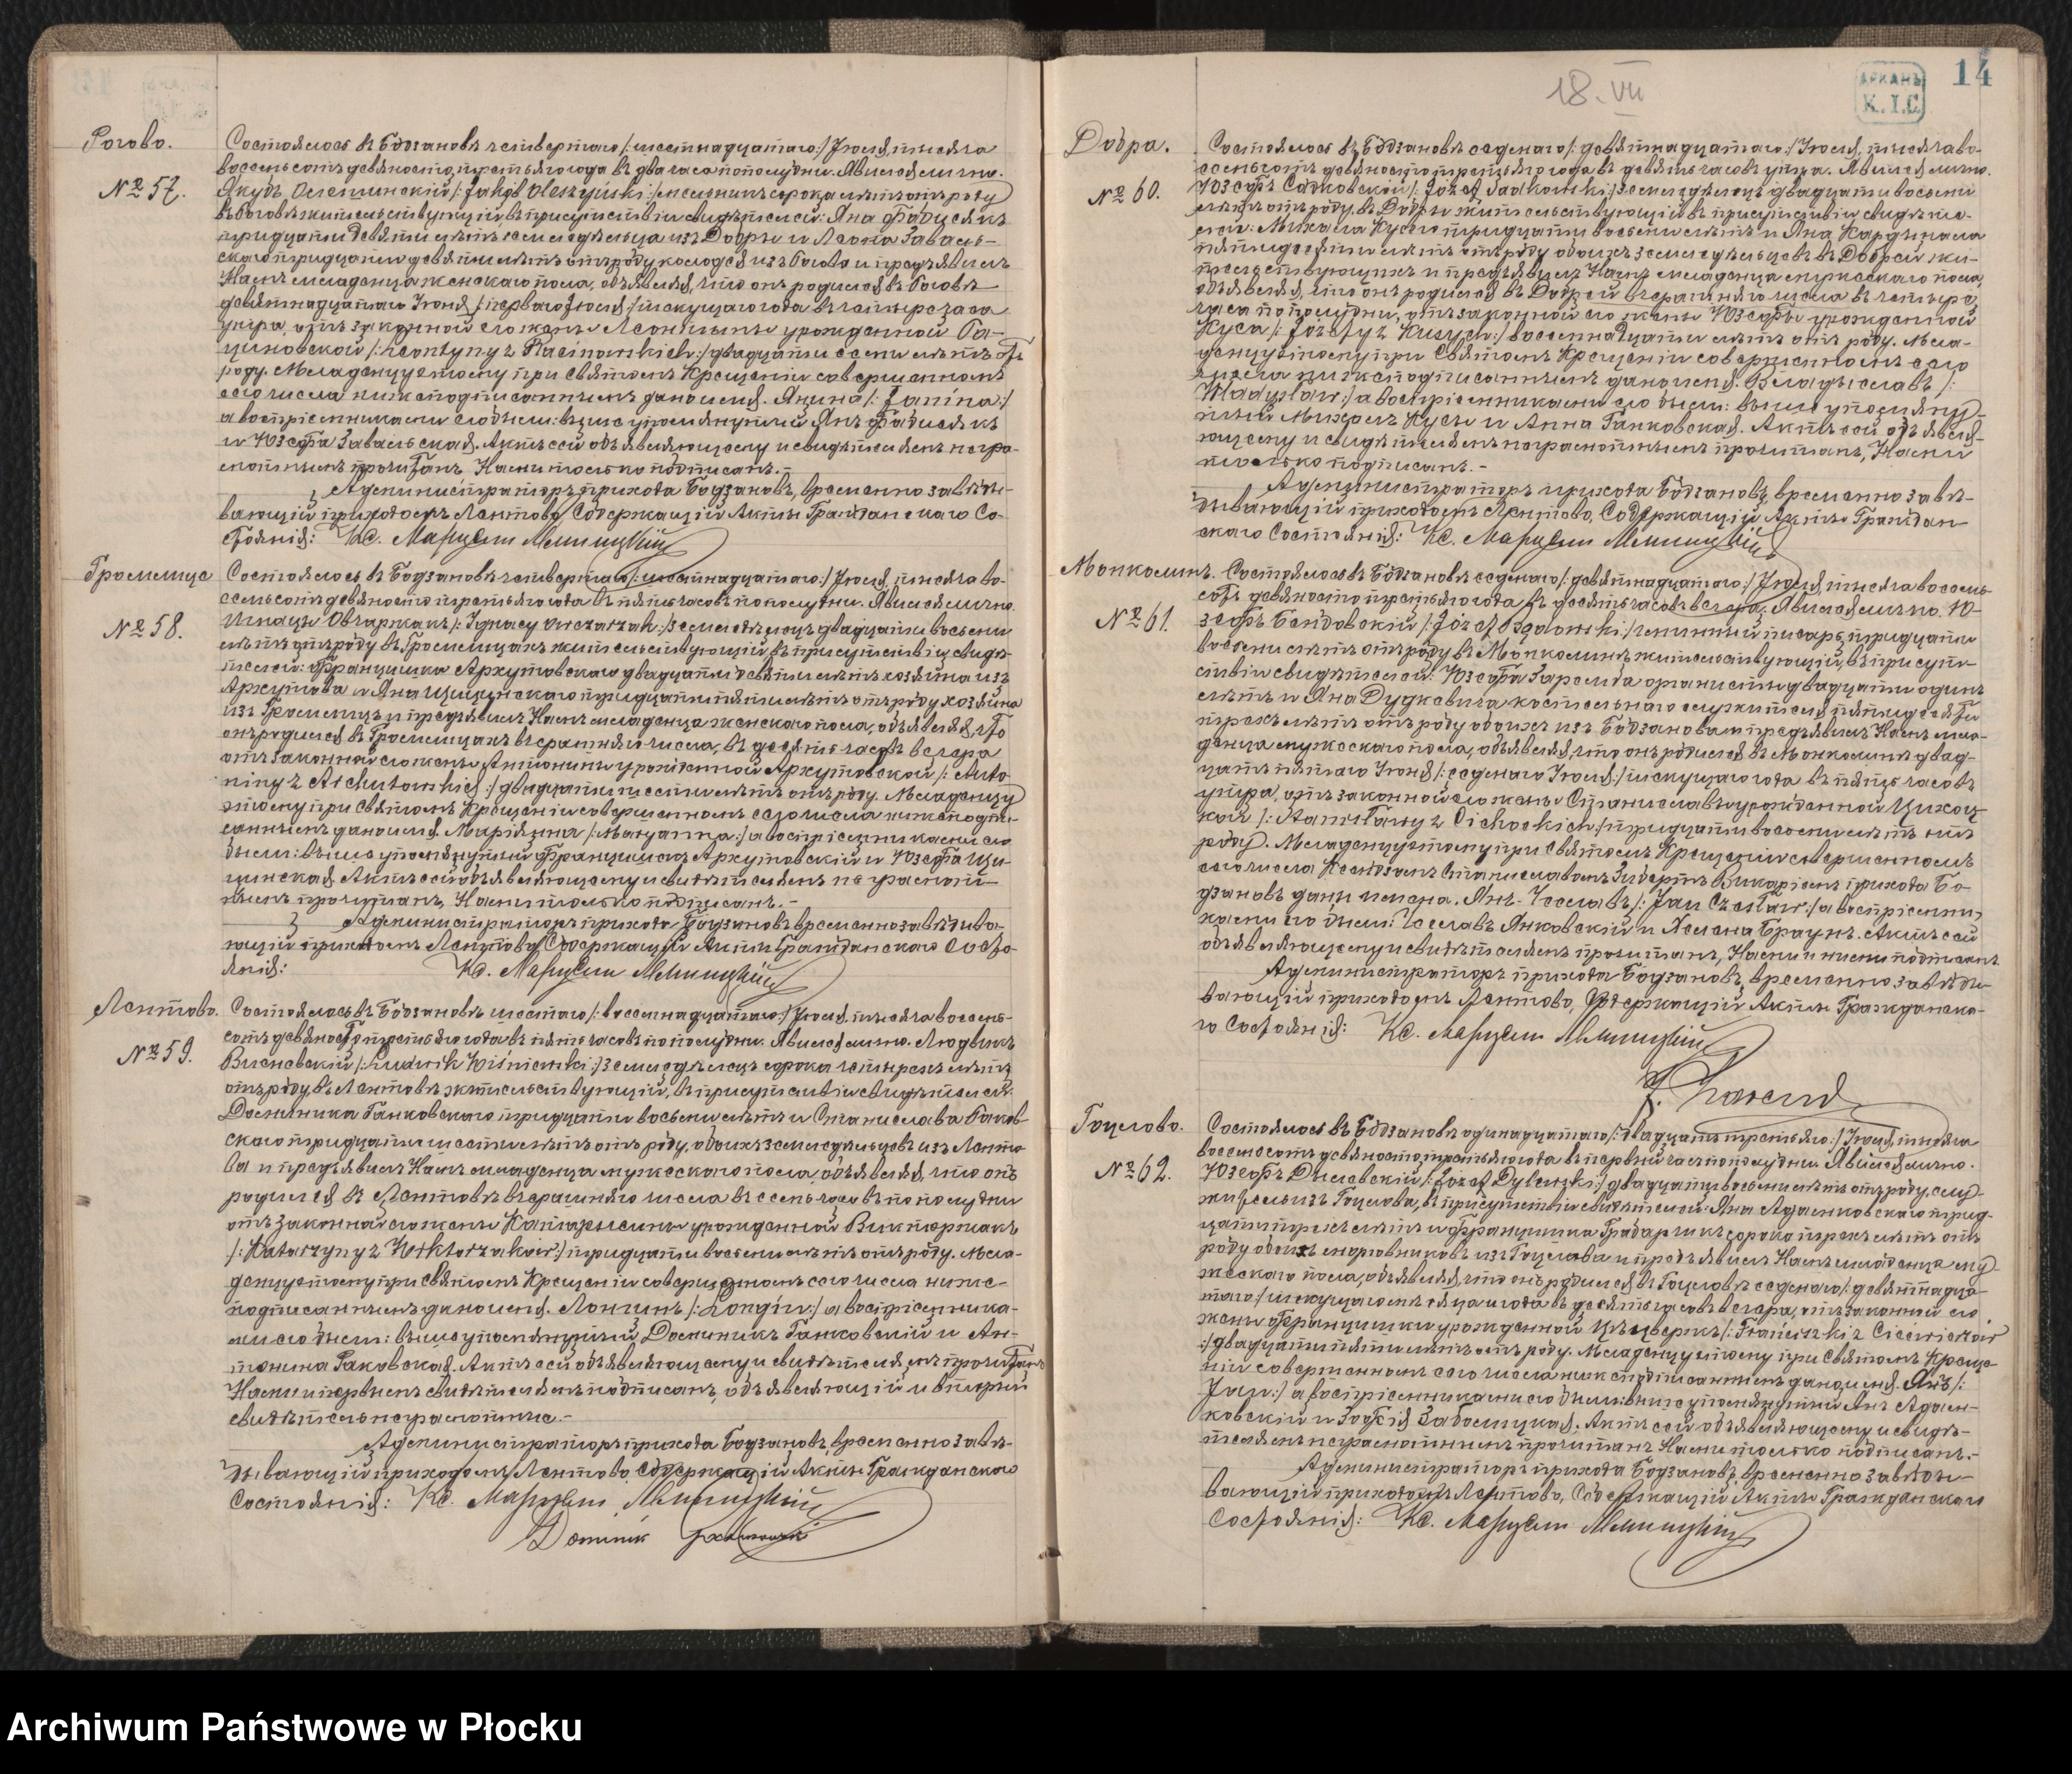 Рогово.
№ 57.
Состоялось въ Бодзановѣ четвертаго /:шестнадцатаго:/ Іюля, тысяча
восемьсотъ девяносто третьяго года въ два часа пополудни. Явился лично
Якубъ Олешинскій /:Jakób Oleszyński:/ мельникъ сорока лѣтъ отъ роду
въ Роговѣ жительствующій въ присутствіи свидѣтелей: Яна Фабисякъ
тридцати девяти лѣтъ, земледѣльца изъ Добры и Леона Заваль-
скаго тридцати девяти лѣтъ отъ роду колодея изъ Рогова и предъявилъ
Намъ младенца женскаго пола, объявляя, что онъ родился въ Роговѣ
девятнадцатаго Іюня /:перваго Іюля:/ текущаго года въ четыре часа
утра, отъ законной его жены Леонтыны урожденной Ра-
циновской /:Leontyny z Racinowskich:/ двадцати семи лѣтъ отъ
роду. Младенцу этому при Святомъ Крещеніи совершенномъ
сего числа нижеподписаннымъ дано имя: Янина /:Janina:/
а воспріемниками его были: вышеупомянутый Янъ Фабисякъ
и Юзефа Завальская. Актъ сей объявляющему и свидѣтелямъ негра-
мотнымъ прочитанъ, Нами только подписанъ.-
Администраторъ прихода Бодзановъ, временно завѣды-
вающій приходомъ Лентово, Содержащій Акты Гражданскаго Со-
стоянія: Кс.
Громлице
№ 58.
Состоялось въ Бодзановѣ четвертаго /:шестнадцатаго:/ Іюля, тысяча во-
семьсотъ девяносто третьяго года въ пять часовъ пополудни. Явился лично
Игнацы Овчаржакъ /:Ignacy Owczarzak:/ земледѣлецъ двадцати восьми
лѣтъ отъ роду въ Громлицахъ жительствующій, въ присутствіи свидѣ-
телей: Францишка Архутовскаго двадцати девяти лѣтъ хозяина изъ
Архутова и Яна Цицинскаго тридцати пяти лѣтъ отъ роду хозяина
изъ Громлицъ и предъявилъ Намъ младенца женскаго пола, объявляя, что
онъ родился въ Громлицахъ вчерашняго числа, въ десять часовъ вечера
отъ законной его жены Антонины урожденной Архутовской /:Anto-
niny z Archutowskich:/ двадцати шести лѣтъ отъ роду. Младенцу
этому при Святомъ Крещеніи совершенномъ сего числа нижеподпи-
саннымъ дано имя: Маріянна /:Maryanna:/ а воспріемниками его
были: вышеупомянутый Францишекъ Архутовскій и Юзефа Ци-
цинская. Актъ сей объявляющему и свидѣтелямъ не грамот-
нымъ прочитанъ, Нами только подписанъ.-
Администраторъ прихода Бодзановъ временно завѣдыва-
ющій приходомъ Лентово, Содержащій Акты Гражданскаго Состо-
янія: Кс.
Лентово.
№ 59.
Состоялось въ Бодзановѣ шестаго /:восемнадцатаго:/ Іюля, тысяча восемь-
сотъ девяносто третьяго года въ пять часовъ пополудни. Явился лично. Людвикъ
Висневскій /:Ludwik Wiśniewski:/ земледѣлецъ сорока четырехъ лѣтъ
отъ роду, въ Лентовѣ жительствующій, въ присутствіи свидѣтелей:
Доминика Ганковскаго тридцати восьми лѣтъ и Станислава Раков-
скаго тридцати шести лѣтъ отъ роду, обоихъ земледѣльцевъ изъ Ленто-
ва и предъявилъ Намъ младенца мужескаго пола, объявляя, что онъ
родился въ Лентовѣ вчерашняго числа въ семь часовъ пополудни
отъ законной его жены Катаржины урожденной Викторжакъ
/:Katarzyny z Wiktorzaków:/ тридцати восьми лѣтъ отъ роду. Мла-
денцу этому при Святомъ Крещеніи совершенномъ сего числа ниже-
подписаннымъ дано имя: Лонгинъ /:Longin:/ а воспріемника-
ми его были: вышеупомянутый Доминикъ Ганковскій и Ан-
тонина Раковская. Актъ сей объявляющему и свидѣтелямъ прочитанъ
Нами и первымъ свидѣтелемъ подписанъ, объявляющій и вторый
свидѣтель неграмотные.-
Администраторъ прихода Бодзановъ, временно завѣ-
дывающій приходомъ Лентово, Содержащій Акты Гражданскаго
Состоянія: Кс.
Dominik
18. VII
АРХИВЪ
К.І.С.
14
Добра.
№ 60.
Состоялось въ Бодзановѣ седьмаго /:девятнадцатаго:/ Іюля, тысяча во-
семьсотъ девяносто третьяго года въ девять часовъ утра. Явился лично.
Юзефъ Садковскій /:Józef Sadkowski:/ земледѣлецъ двадцати восьми
лѣтъ отъ роду, въ Добры жительствующій въ присутствіи свидѣте-
лей: Михала Кусы тридцати восьми лѣтъ и Яна Кардынала
пятидесяти лѣтъ отъ роду обоихъ земледѣльцевъ въ Доброй жи-
тельствующихъ и предъявилъ Намъ младенца мужескаго пола,
объявляя, что онъ родился въ Доброй вчерашняго числа въ четыре
часа пополудни, отъ законной его жены Юзефы урожденной
Куса /:Józefy z Kusych:/ восемнадцати лѣтъ отъ роду. Мла-
денцу этому при Святомъ Крещеніи совершенномъ сего
числа нижеподписаннымъ дано имя: Владыславъ /:
Władysław:/ а воспріемниками его были: вышеупомяну-
тый Михалъ Кусы и Анна Ганковская. Актъ сей объявля-
ющему и свидѣтелямъ неграмотнымъ прочитанъ, Нами
только подписанъ.-
Администраторъ прихода Бодзановъ, временно завѣ-
дывающій приходомъ Лентово, Содержащій Акты Граждан-
скаго Состоянія: Кс.
Монколинъ.
№ 61.
Состоялось въ Бодзановѣ седьмаго /:девятнадцатаго:/ Іюля, тысяча восемь-
сотъ девяносто третьяго года, въ десять часовъ вечера. Явился лично. Ю-
зефъ Бендовскій /:Józef Będowski:/ гминный писарь, тридцати
восьми лѣтъ отъ роду въ Монколинѣ жительствующій, въ присут-
ствіи свидѣтелей: Юзефа Зарембы органисты двадцати одинъ
лѣтъ и Яна Дудкевича костельнаго служителя пятидесяти
трехъ лѣтъ отъ роду обоихъ изъ Бодзанова и предъявилъ Намъ мла-
денца мужескаго пола, объявляя, что онъ родился въ Монколинѣ двад-
цать пятаго Іюня /:седьмаго Іюля:/ текущаго года въ пять часовъ
утра, отъ законной его жены Станиславы урожденной Цихоц-
кой /:Stanisławy z Cichockich:/ тридцати восьми лѣтъ отъ
роду. Младенцу этому при Святомъ Крещеніи совершенномъ
сего числа Ксендзомъ Станиславомъ Викаріемъ прихода Бо-
дзановъ даны имена: Янъ-Чеславъ /:Jan Czesław:/ а воспріемни-
ками его были: Чеславъ Янковскій и Браунъ. Актъ сей
объявляющему и свидѣтелямъ прочитанъ, Нами и ними подписанъ.
Администраторъ прихода Бодзановъ, временно завѣды-
вающій приходомъ Лентово, Содержащій Акты Гражданска-
го Состоянія: Кс.
Гоцлово.
№ 62.
Состоялось въ Бодзановѣ одинадцатаго /:двадцать третьяго:/ Іюля, тысяча
восемьсотъ девяносто третьяго года въ первый часъ пополудни. Явился лично.
Юзефъ Дылевскій /:Józef Dylewski:/ двадцати восьми лѣтъ отъ роду, слу-
житель изъ Гоцлова, въ присутствіи свидѣтелей: Яна Адамковскаго трид-
цати трехъ лѣтъ и Францишка Грабарчикъ сорока трехъ лѣтъ отъ
роду обоихъ изъ Гоцлова и предъявилъ Намъ младенца му-
жескаго пола, объявляя, что онъ родился въ Гоцловѣ седьмаго /:девятнадца-
таго:/ текущаго мѣсяца и года въ десять часовъ вечера, отъ законной его
жены Францишки урожденной
:/ двадцати пяти лѣтъ отъ роду. Младенцу этому при Святомъ Креще-
ніи совершенномъ сего числа нижеподписаннымъ дано имя: Янъ /:
Jan:/ а воспріемниками его были: вышеупомянутый Янъ Адам-
ковскій и Зофія Актъ сей объявляющему и свидѣ-
телямъ неграмотнымъ прочитанъ Нами только подписанъ.-
Администраторъ прихода Бодзановъ, временно завѣды-
вающій приходомъ Лентово, Содержащій Акты Гражданскаго
Состоянія: Кс.
Archiwum Państwowe w Płocku